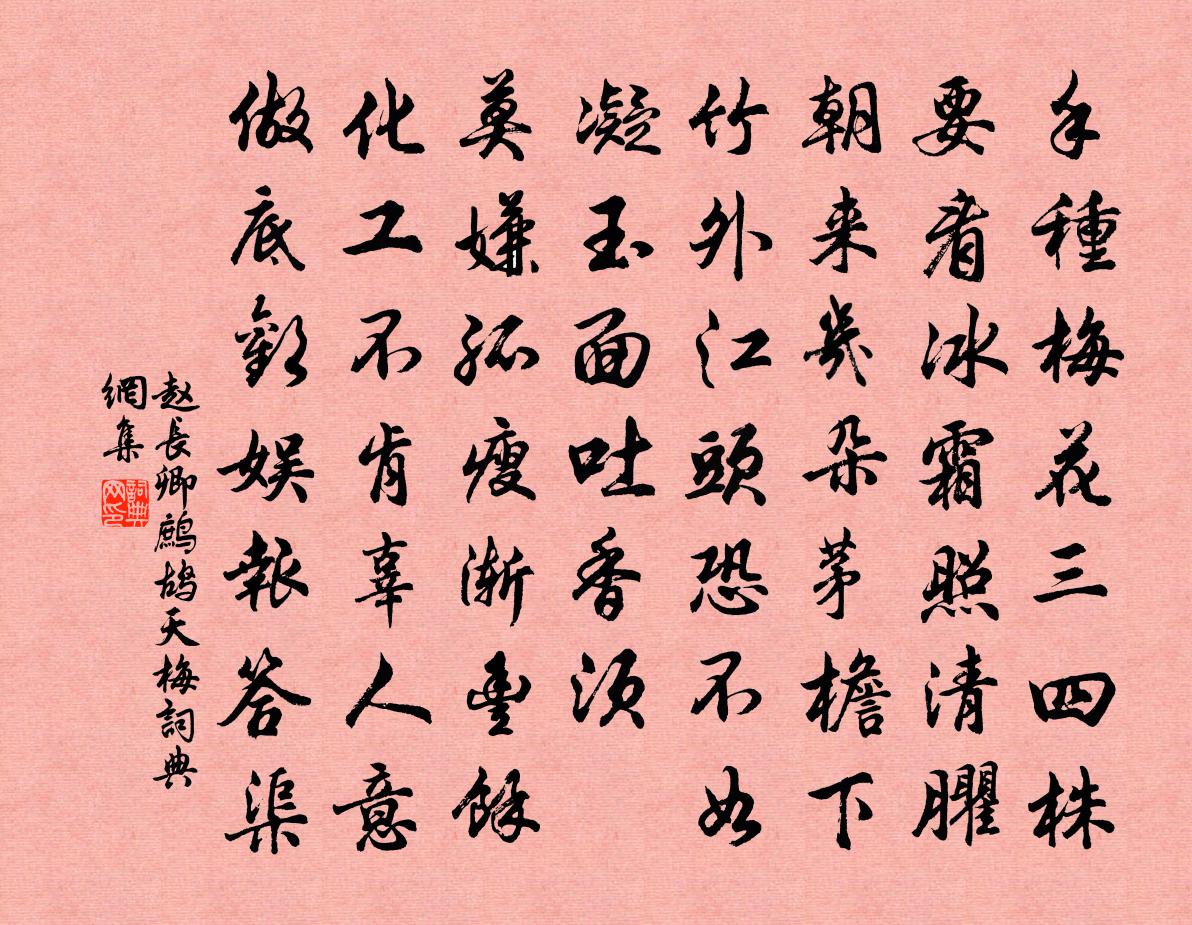 手種梅花三四株
要看冰霜照清臞
朝来幾朵茅檐下
竹外江頭恐不如
凝玉面吐香须
莫嫌孤瘦漸豐餘
化工不肯辜人意
做底歡娱報答渠
赵長卿鷓鴣天梅詞典
網集
詞典
网印